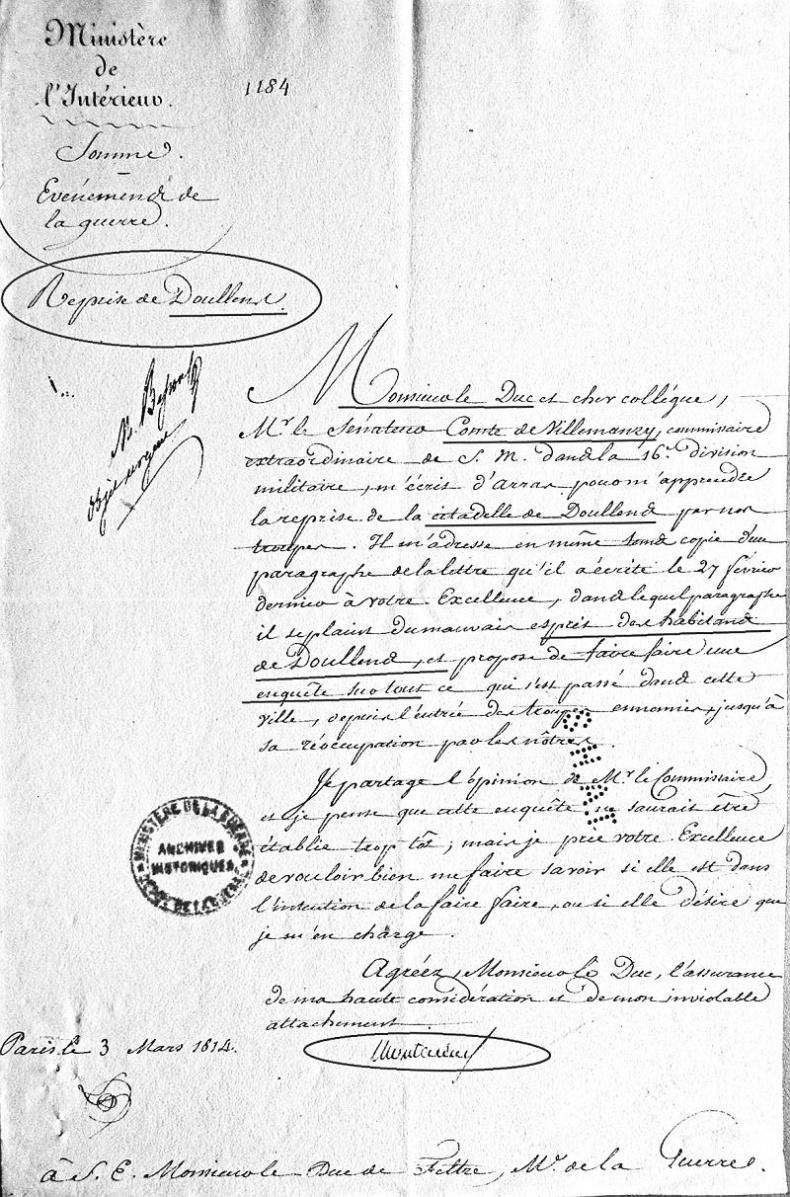 Ministère
de
l'Intérieur.
1184
Somme.
Evénemens de
la guerre.
Reprise de Doullens.
M.
Monsieur le Duc et cher collègue,
Mr. le Sénateur Comte de Villemanzy, commissaire
extraordinaire de S. M. dans la 16e. division
militaire, m'écrit d'Arras pour m'apprendre
la reprise de la citadelle de Doullens par nos
troupes. Il m'adresse en même tems copie d'un
paragraphe de la lettre qu'il a écrite le 27 février
dernier à votre Excellence, dans lequel paragraphe
il se plaint du mauvais esprit des habitans
de Doullens, et propose de faire faire une
enquête sur tout ce qui s'est passé dans cette
ville, depuis l'entrée des troupes ennemies, jusqu'à
sa réoccupation par les nôtres.
Je partage l'opinion de Mr. le Commissaire,
et je pense que cette enquête ne saurait être
établie trop tôt; mais je prie votre Excellence
de vouloir bien me faire savoir si elle est dans
l'intention de la faire faire, ou si elle désire que
je m'en charge.
MINISTÈRE DE LA GUERRE
ARCHIVES
HISTORIQUES
Agréez, Monsieur le Duc, l'assurance
de ma haute considération et de mon inviolable
attachement.
Paris, le 3 Mars 1814.
Montalivet
à S. E. Monsieur le Duc de Feltre, Mre. de la Guerre.